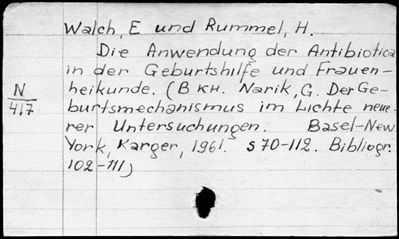 Walch, E und Rummel, H.
Die Anwendung der Antibiotica
in der Geburtshilfe und Frauen-
heikunde. (В кн. Narik, G. Der Ge-
N
417
burtsmechanismus im Lichte neue-
rer Untersuchungen. Basel-New
York, Karger, 1961. S 70-112. Bibliogr.
102-111)